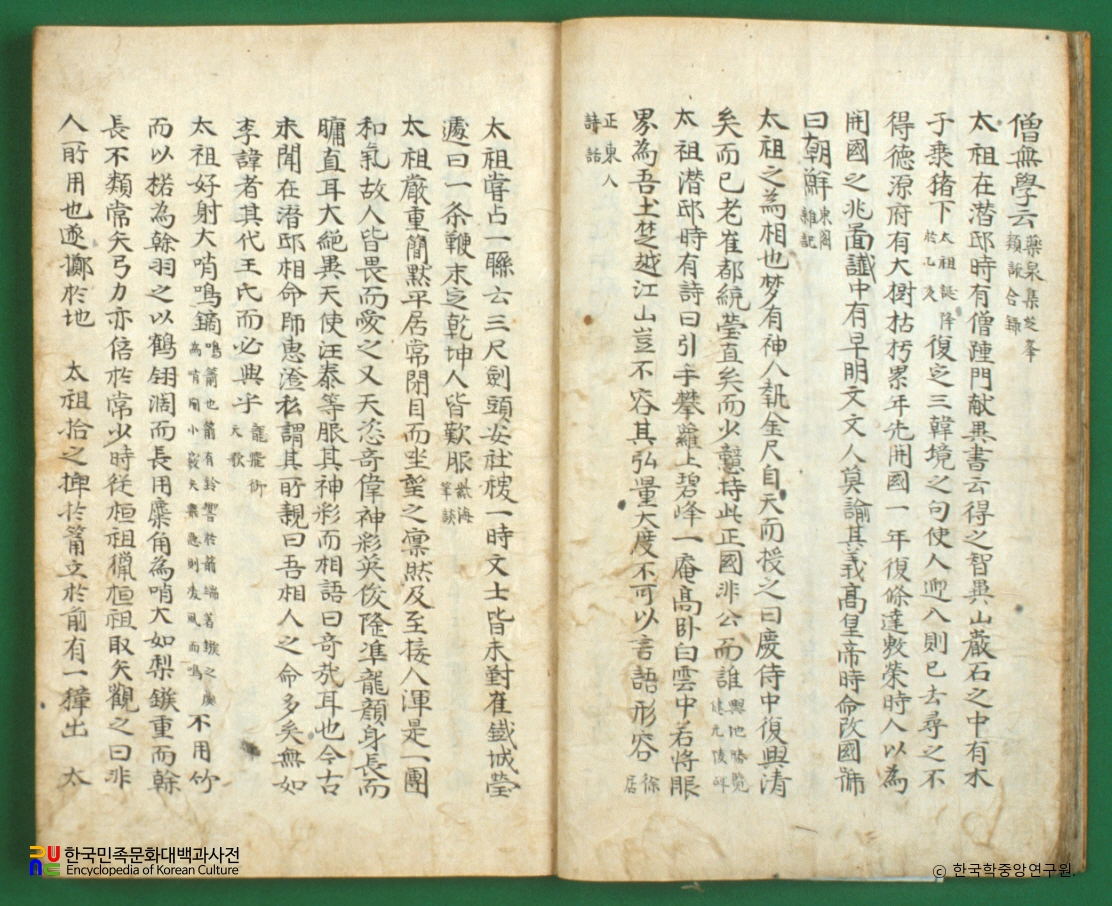 僧無學云 藥泉集芝峯類說合錄
太祖在潛邸時有僧踵門献異書云得之智異山巖石之中有木
子乗猪下 太祖誕降於乙亥 復㝎三韓境之句使人迎入則已去尋之不
得德源府有大樹枯朽累年先開國一年復條達敷榮時人以為
開國之兆啚讖中有早明文文人莫諭其義高皇帝時命改國號
曰朝鮮 東閣雜記
太祖之為相也梦有神人執金尺自天而授之曰慶侍中復興清
矣而已老崔都統瑩直矣而少戇持此正國非公而誰 輿地勝覽健元陵碑
太祖潛邸時有詩曰引手攀蘿上碧峰一庵高卧白雲中若將眼
界為吾土楚越江山豈不容其弘量大度不可以言語形容 徐居
正東人詩話
太祖甞占一聯云三尺劍頭安社稷一時文士皆未對崔鐵城瑩
遽曰一条鞭末㝎乾坤人皆歎服 海筆談
太祖嚴重簡黙平居常閉目而坐望之凛然及至接人渾是一團
和氣故人皆畏而愛之又天恣奇偉神彩英俊隆準龍顔身長而
聰直耳大絶異天使汪泰等服其神彩而相語曰奇㢤耳也今古
未聞在潛邸相命師惠澄私謂其所親曰吾相人之命多矣無如
李諱者其代王氏而必興乎 龍飛御天歌
太祖好射大哨鳴鏑 鳴箭也箭有鈴響於箭端著鏃之處為哨開小竅矢乗急則受風而鳴 不用竹
而以楛為幹羽之以鶴翎濶而長用麋角為哨大如梨鏃重而幹
長不類常矢弓力亦倍於常少時従桓祖獵桓祖取矢觀之曰非
人所用也遂擲於地 太祖拾之揷於箭立於前有一獐出 太
한국민족문화대백과사전
Encyclopedia of Korean Culture
© 한국학중앙연구원